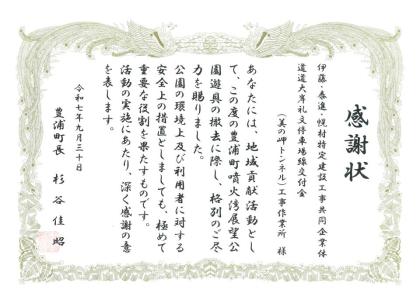 感謝状
伊藤・泰進・幌村特定建設工事共同企業体
道道大岸礼文停車場線交付金
(美の岬トンネル)工事作業所 様
あなたには、地域貢献活動とし
て、この度の豊浦町噴火湾展望公
園遊具の撤去に際し、格別のご尽
力を賜りました。
公園の環境上及び利用者に対する
安全上の措置としましても、極めて
重要な役割を果たすものです。
活動の実施にあたり、深く感謝の意
を表します。
令和七年九月三十日
豊浦町長 杉谷佳昭